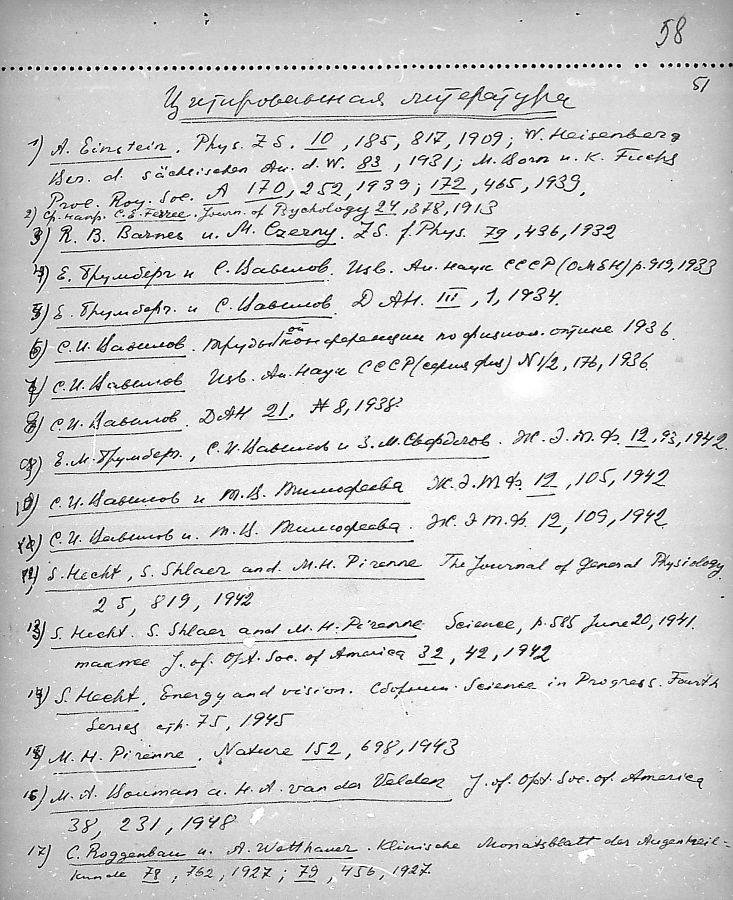 58
51
Цитированная литература
1) A. Einstein, Phys. ZS. 10, 185, 817, 1909; W. Heisenberg
Ber. d. sächsischen Ak. d. W. 83, 1931; M. Born u. K. Fuchs
Proc. Roy. Soc. A 170, 252, 1939; 172, 465, 1939,
2) Ср. напр. C. E. Ferree. Journ. of Psychology 24, 378, 1913
3) R. B. Barnes u. M. Czerny. ZS. f. Phys. 79, 436, 1932
4) Е. Брумберг и С. Вавилов. Изв. Ак. Наук СССР (ОМЕН) р. 919, 1933
5) Е. Брумберг. и С. Вавилов. ДАН. III, 1, 1934.
6) С. И. Вавилов. Труды ой конференции по физиол. оптике 1936.
7) С. И. Вавилов Изв. Ак. Наук СССР (серия физ) N 1/2, 176, 1936.
8) С. И. Вавилов. ДАН 21, № 8, 1938.
9) Е. М. Брумберг, С. И. Вавилов и З. М. Свердлов. Ж. Э. Т. Ф. 12, 93, 1942.
10) С. И. Вавилов и Т. В. Тимофеева Ж. Э. Т. Ф. 12, 105, 1942
11) С. И. Вавилов и. Т. В. Тимофеева. Ж. Э Т. Ф. 12, 109, 1942
12) S. Hecht, S. Shlaer and. M. H. Pirenne The Journal of General Physiology.
25, 819, 1942
13) S. Hecht. S. Shlaer and M. H. Pirenne Science, p. 585 June 20, 1941.
также J. of. Opt. Soc. of America 32, 42, 1942
14) S. Hecht, Energy and vision. Сборник. Science in Progress. Fourth
Series стр. 75, 1945
15) M. H. Pirenne, Nature 152, 698, 1943
16) M. A. Bouman a. H. A. van der Velden J. of. Opt. Soc. of. America
38, 231, 1948
17) C. Roggenbau u. A. Wetthauer. Klinische Monatsblatt der Augenheil-
kunde 78, 762, 1927; 79, 456, 1927.